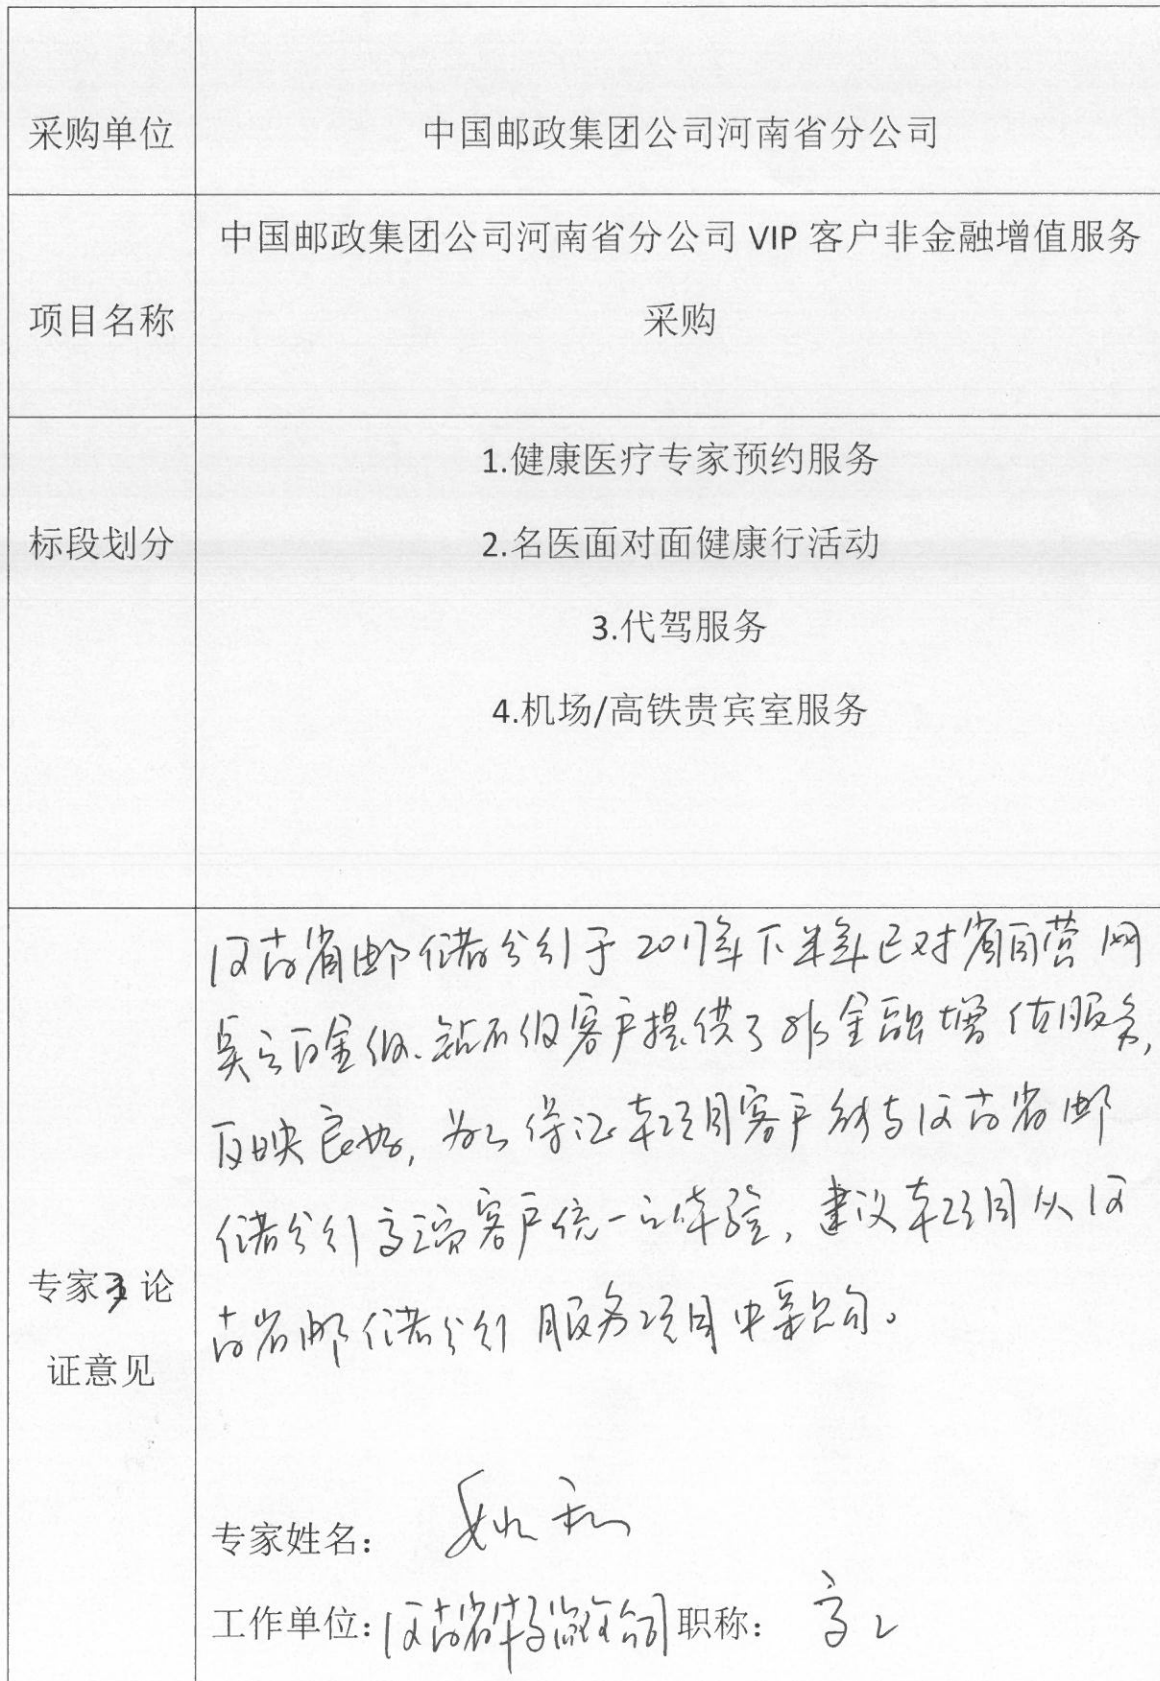 采购单位
中国邮政集团公司河南省分公司
项目名称
中国邮政集团公司河南省分公司 VIP 客户非金融增值服务
采购
标段划分
1.健康医疗专家预约服务
2.名医面对面健康行活动
3.代驾服务
4.机场/高铁贵宾室服务
专家 论
证意见
河南省邮储分行于2017年下半年已对省自营网
点之白金级、钻石级客户提供了非金融增值服务,
反映良好, 为了保证本项目客户能与河南省邮
储分行高端客户统一之体验, 建议本项目从河
南省邮储分行服务项目中采购。
专家姓名:
工作单位: 河南省 公司 职称: 高工